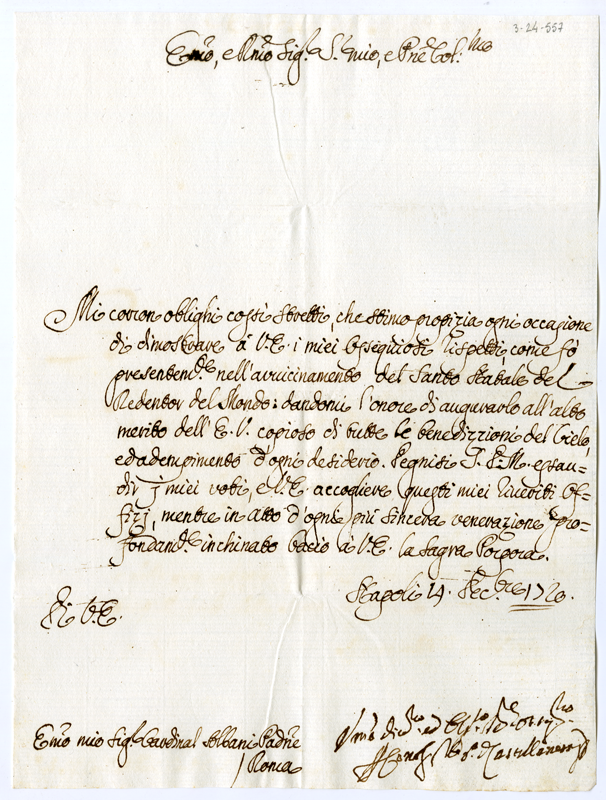 3-24-557
Em̃o, e Rm̃o Sig.r S.r mio, e Pñe Col.mo
Mi corron oblighi cossì stretti, che stimo propizia ogni occasione
di dimostrare à V.E. i miei ossequiosi rispetti come fò
presentem.te nell'avvicinamento del Santo Natale del
Redentor del Mondo: dandomi l'onore di augurarlo all'alto
merito dell'E.V. copioso di tutte le benedizzioni del Cielo,
ed adempimento d'ogni desiderio. Degnisi S.D.M. esau-
dir j miei voti, e V.E. accogliere questi miei riveriti of-
fizj, mentre in atto d'ogni più sincera venerazione pro-
fondam.te inchinato bacio à V.E. la Sagra Porpora.
Napoli 14. Dec.bre 1720.
Di V.E.
Em̃o mio Sig.r Cardinal Albani Padñe
Roma